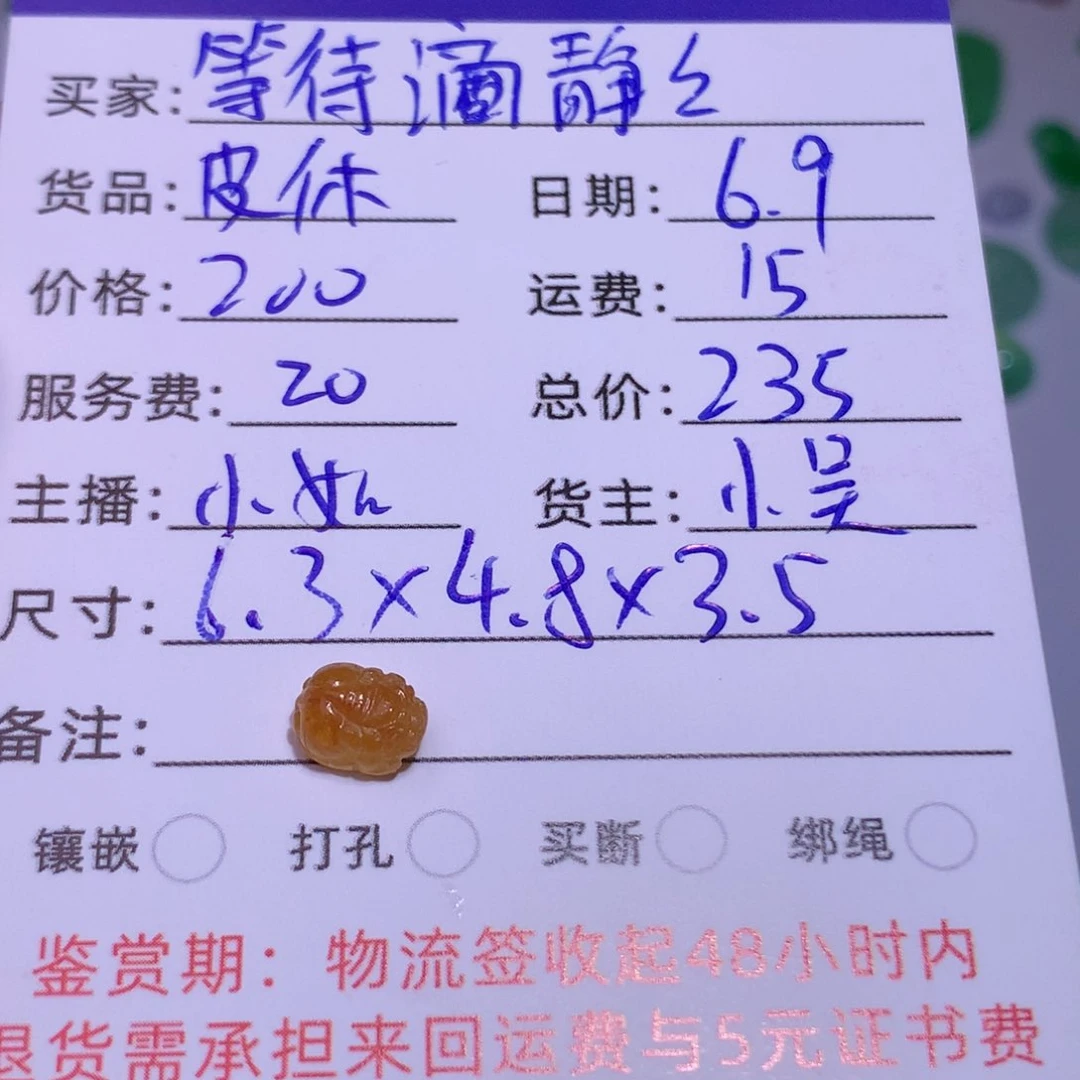 买家: 等待滴静幺
货品: 皮休 日期: 6.9
价格: 200 运费: 15
服务费: 20 总价: 235
主播: 小如 货主: 小吴
尺寸: 6.3×4.8×3.5
备注:
镶嵌 打孔 买断 绑绳
鉴赏期: 物流签收起48小时内
退货需承担来回运费与5元证书费